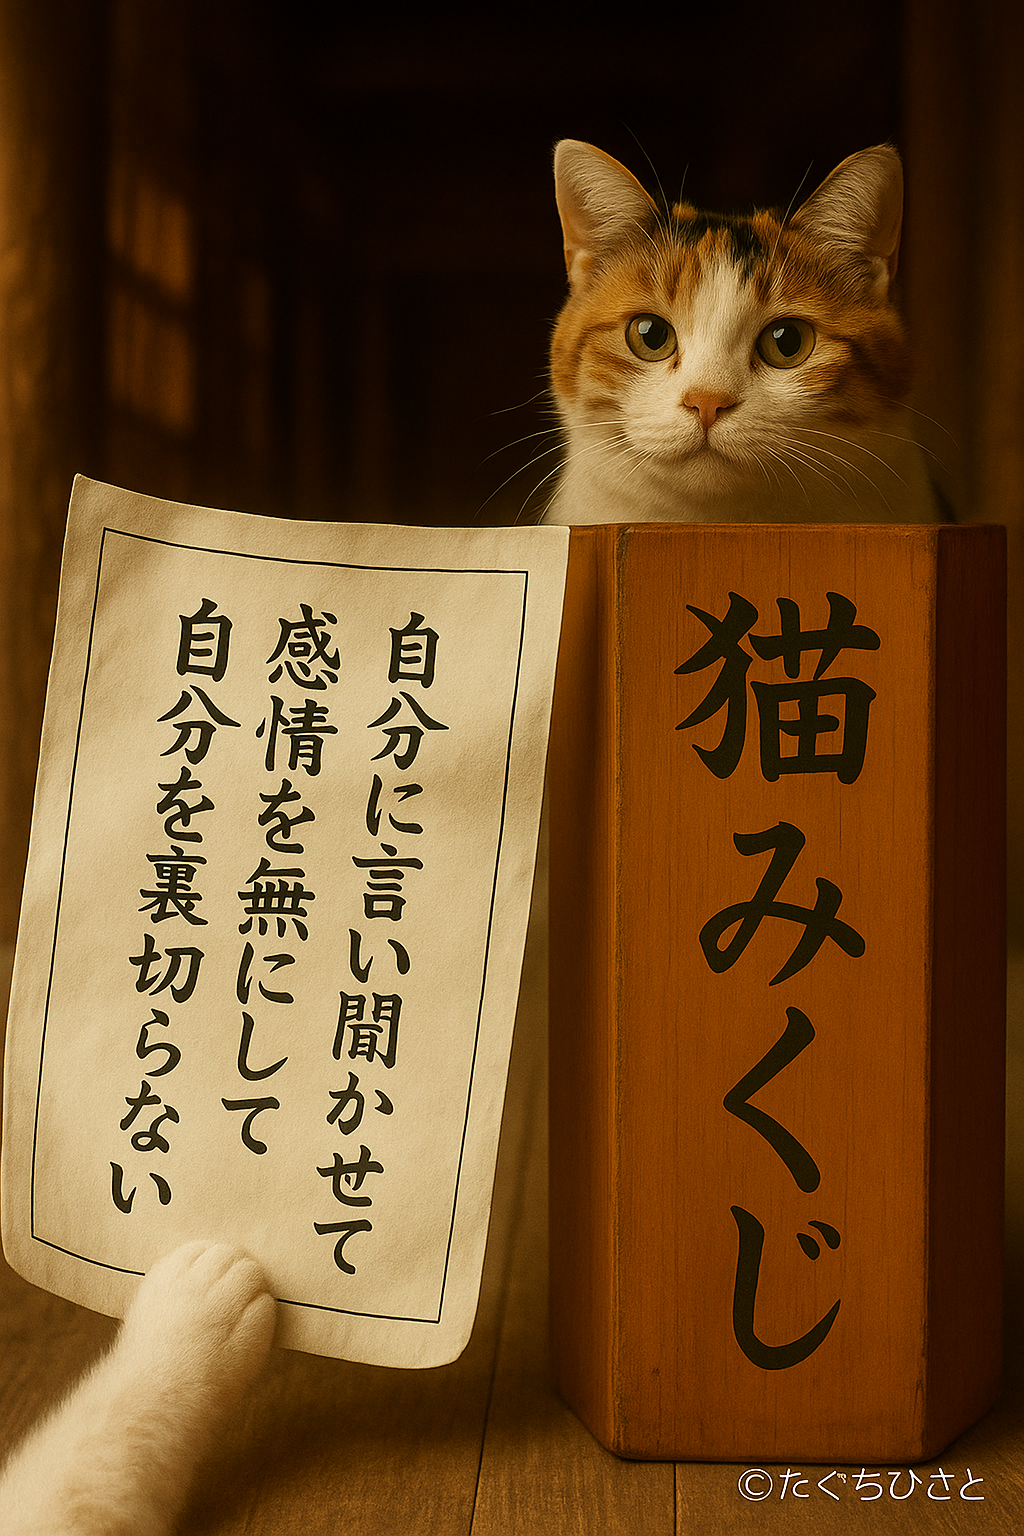 自分に言い聞かせて
感情を無にして
自分を裏切らない
猫みくじ
©たぐちひさと